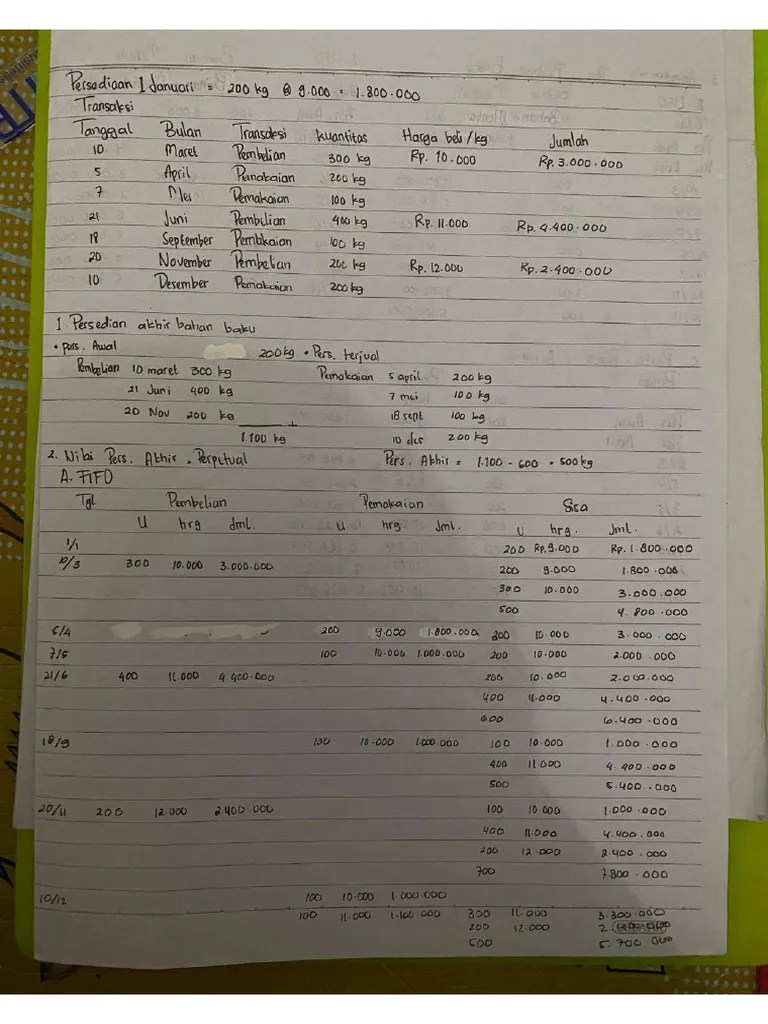 Persediaan 1 Januari = 200 kg @ 9.000 = 1.800.000
Transaksi
Tanggal Bulan Transaksi kuantitas Harga beli /kg Jumlah
10 Maret Pembelian 300 kg Rp. 10.000 Rp. 3.000.000
5 April Pemakaian 200 kg
7 Mei Pemakaian 100 kg
21 Juni Pembelian 400 kg Rp. 11.000 Rp. 4.400.000
18 September Pemakaian 100 kg
20 November Pembelian 200 kg Rp. 12.000 Rp. 2.400.000
10 Desember Pemakaian 200 kg
1 Persedian akhir bahan baku
• pers. Awal 200 kg • Pers. terjual
Pembelian 10 maret 300 kg Pemakaian 5 april 200 kg
21 Juni 400 kg 7 mei 100 kg
20 Nov 200 kg 18 sept 100 kg
1.100 kg 10 des 200 kg
2. Nilai Pers. Akhir . Perpetual Pers. Akhir = 1.100 - 600 = 500 kg
A. FIFO
Tgl Pembelian Pemakaian Sisa
U hrg Jml. U hrg. Jml. U hrg. Jml.
1/1 200 Rp. 9.000 Rp. 1.800.000
10/3 300 10.000 3.000.000 200 9.000 1.800.000
300 10.000 3.000.000
500 4.800.000
5/4 200 9.000 1.800.000 300 10.000 3.000.000
7/5 100 10.000 1.000.000 200 10.000 2.000.000
21/6 400 11.000 4.400.000 200 10.000 2.000.000
400 11.000 4.400.000
600 6.400.000
18/9 100 10.000 1.000.000 100 10.000 1.000.000
400 11.000 4.400.000
500 5.400.000
20/11 200 12.000 2.400.000 100 10.000 1.000.000
400 11.000 4.400.000
200 12.000 2.400.000
700 7.800.000
10/12 100 10.000 1.000.000
100 11.000 1.100 000 300 11.000 3.300.000
200 12.000 2.
500 5.700 000